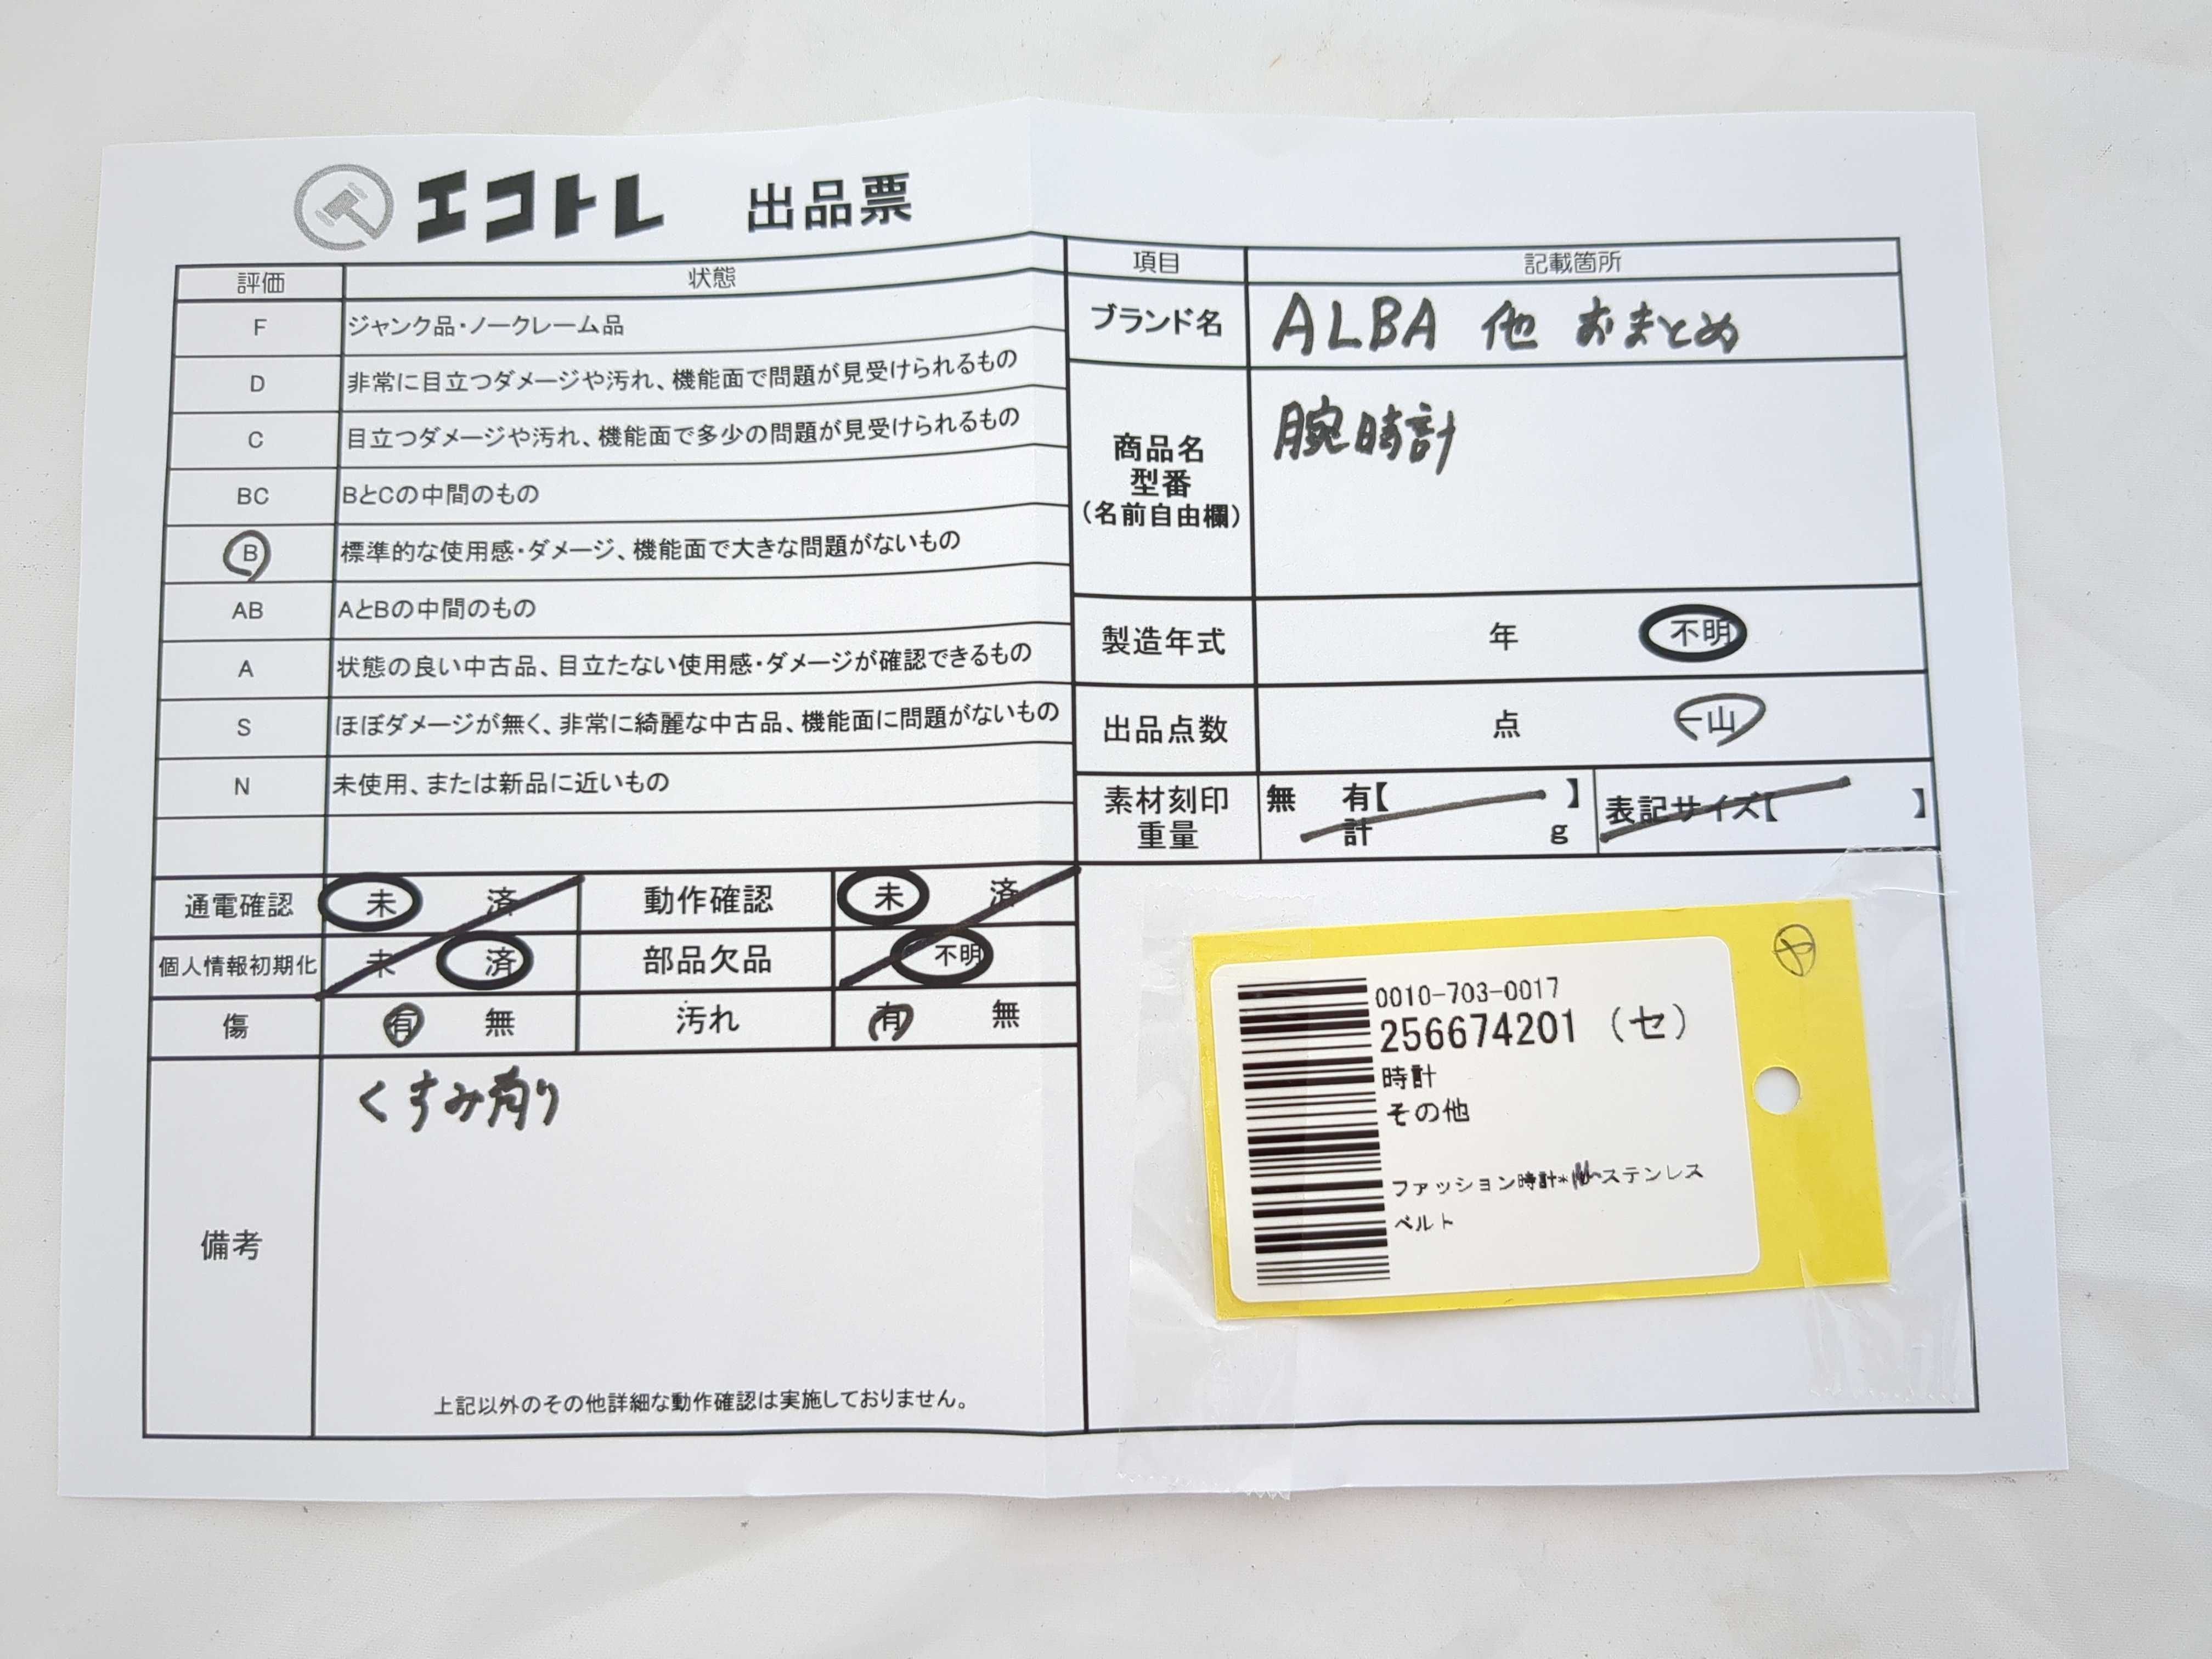 エコトレ 出品票
評価 状態
F ジャンク品・ノークレーム品
D 非常に目立つダメージや汚れ、機能面で問題が見受けられるもの
C 目立つダメージや汚れ、機能面で多少の問題が見受けられるもの
BC BとCの中間のもの
B 標準的な使用感・ダメージ、機能面で大きな問題がないもの
AB AとBの中間のもの
A 状態の良い中古品、目立たない使用感・ダメージが確認できるもの
S ほぼダメージが無く、非常に綺麗な中古品、機能面に問題がないもの
N 未使用、または新品に近いもの
通電確認 未 済 動作確認 未 済
個人情報初期化 未 済 部品欠品 不明
傷 有 無 汚れ 有 無
備考
くすみ有り
上記以外のその他詳細な動作確認は実施しておりません。
項目 記載箇所
ブランド名 ALBA 他 おまとめ
商品名
型番
(名前自由欄)
腕時計
製造年式 年 不明
出品点数 点 一山
素材刻印
重量
無 有【 】
計 g
表記サイズ【 】
ヤ
0010-703-0017
256674201 (セ)
時計
その他
ファッション時計* ステンレス
ベルト